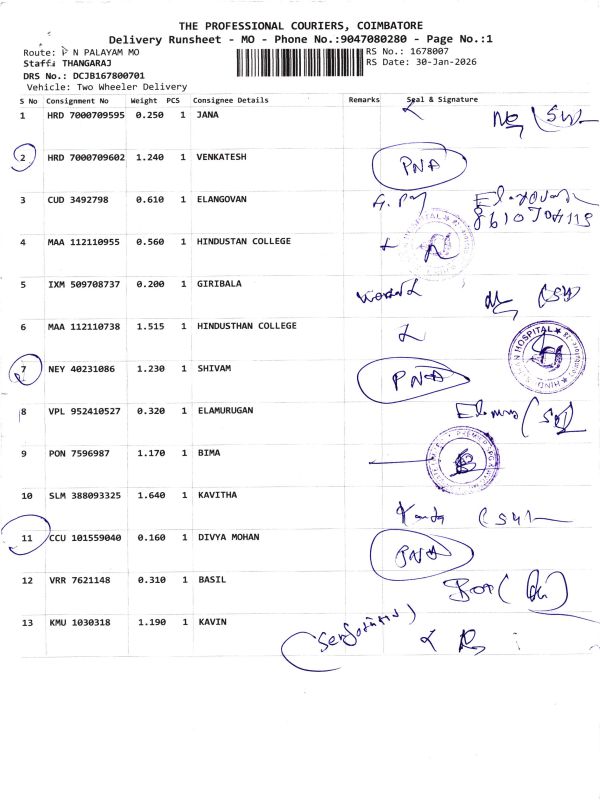 THE PROFESSIONAL COURIERS, COIMBATORE
Delivery Runsheet - MO - Phone No.:9047080280 - Page No.:1
Route: P N PALAYAM MO RS No.: 1678007
Staff: THANGARAJ RS Date: 30-Jan-2026
DRS No.: DCJB167800701
Vehicle: Two Wheeler Delivery
S No Consignment No Weight PCS Consignee Details Remarks Seal & Signature
1 HRD 7000709595 0.250 1 JANA
2 HRD 7000709602 1.240 1 VENKATESH PNA
3 CUD 3492798 0.610 1 ELANGOVAN
4 MAA 112110955 0.560 1 HINDUSTAN COLLEGE
5 IXM 509708737 0.200 1 GIRIBALA
6 MAA 112110738 1.515 1 HINDUSTHAN COLLEGE
HOSPITAL
7 NEY 40231086 1.230 1 SHIVAM PNA
8 VPL 952410527 0.320 1 ELAMURUGAN
9 PON 7596987 1.170 1 BIMA
10 SLM 388093325 1.640 1 KAVITHA
11 CCU 101559040 0.160 1 DIVYA MOHAN PNA
12 VRR 7621148 0.310 1 BASIL
13 KMU 1030318 1.190 1 KAVIN